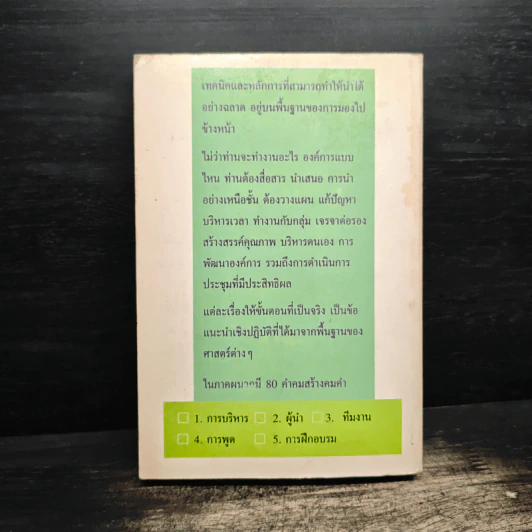 เทคนิคและหลักการที่สามารถทำให้นำได้
อย่างฉลาด อยู่บนพื้นฐานของการมองไป
ข้างหน้า
ไม่ว่าท่านจะทำงานอะไร องค์การแบบ
ไหน ท่านต้องสื่อสาร นำเสนอ การนำ
อย่างเหนือชั้น ต้องวางแผน แก้ปัญหา
บริหารเวลา ทำงานกับกลุ่ม เจรจาต่อรอง
สร้างสรรค์คุณภาพ บริหารตนเอง การ
พัฒนาองค์การ รวมถึงการดำเนินการ
ประชุมที่มีประสิทธิผล
แต่ละเรื่องให้ขั้นตอนที่เป็นจริง เป็นข้อ
แนะนำเชิงปฏิบัติที่ได้มาจากพื้นฐานของ
ศาสตร์ต่างๆ
ในภาคผนวกมี 80 คำคมสร้างคมคำ
1. การบริหาร 2. ผู้นำ 3. ทีมงาน
4. การพูด 5. การฝึกอบรม